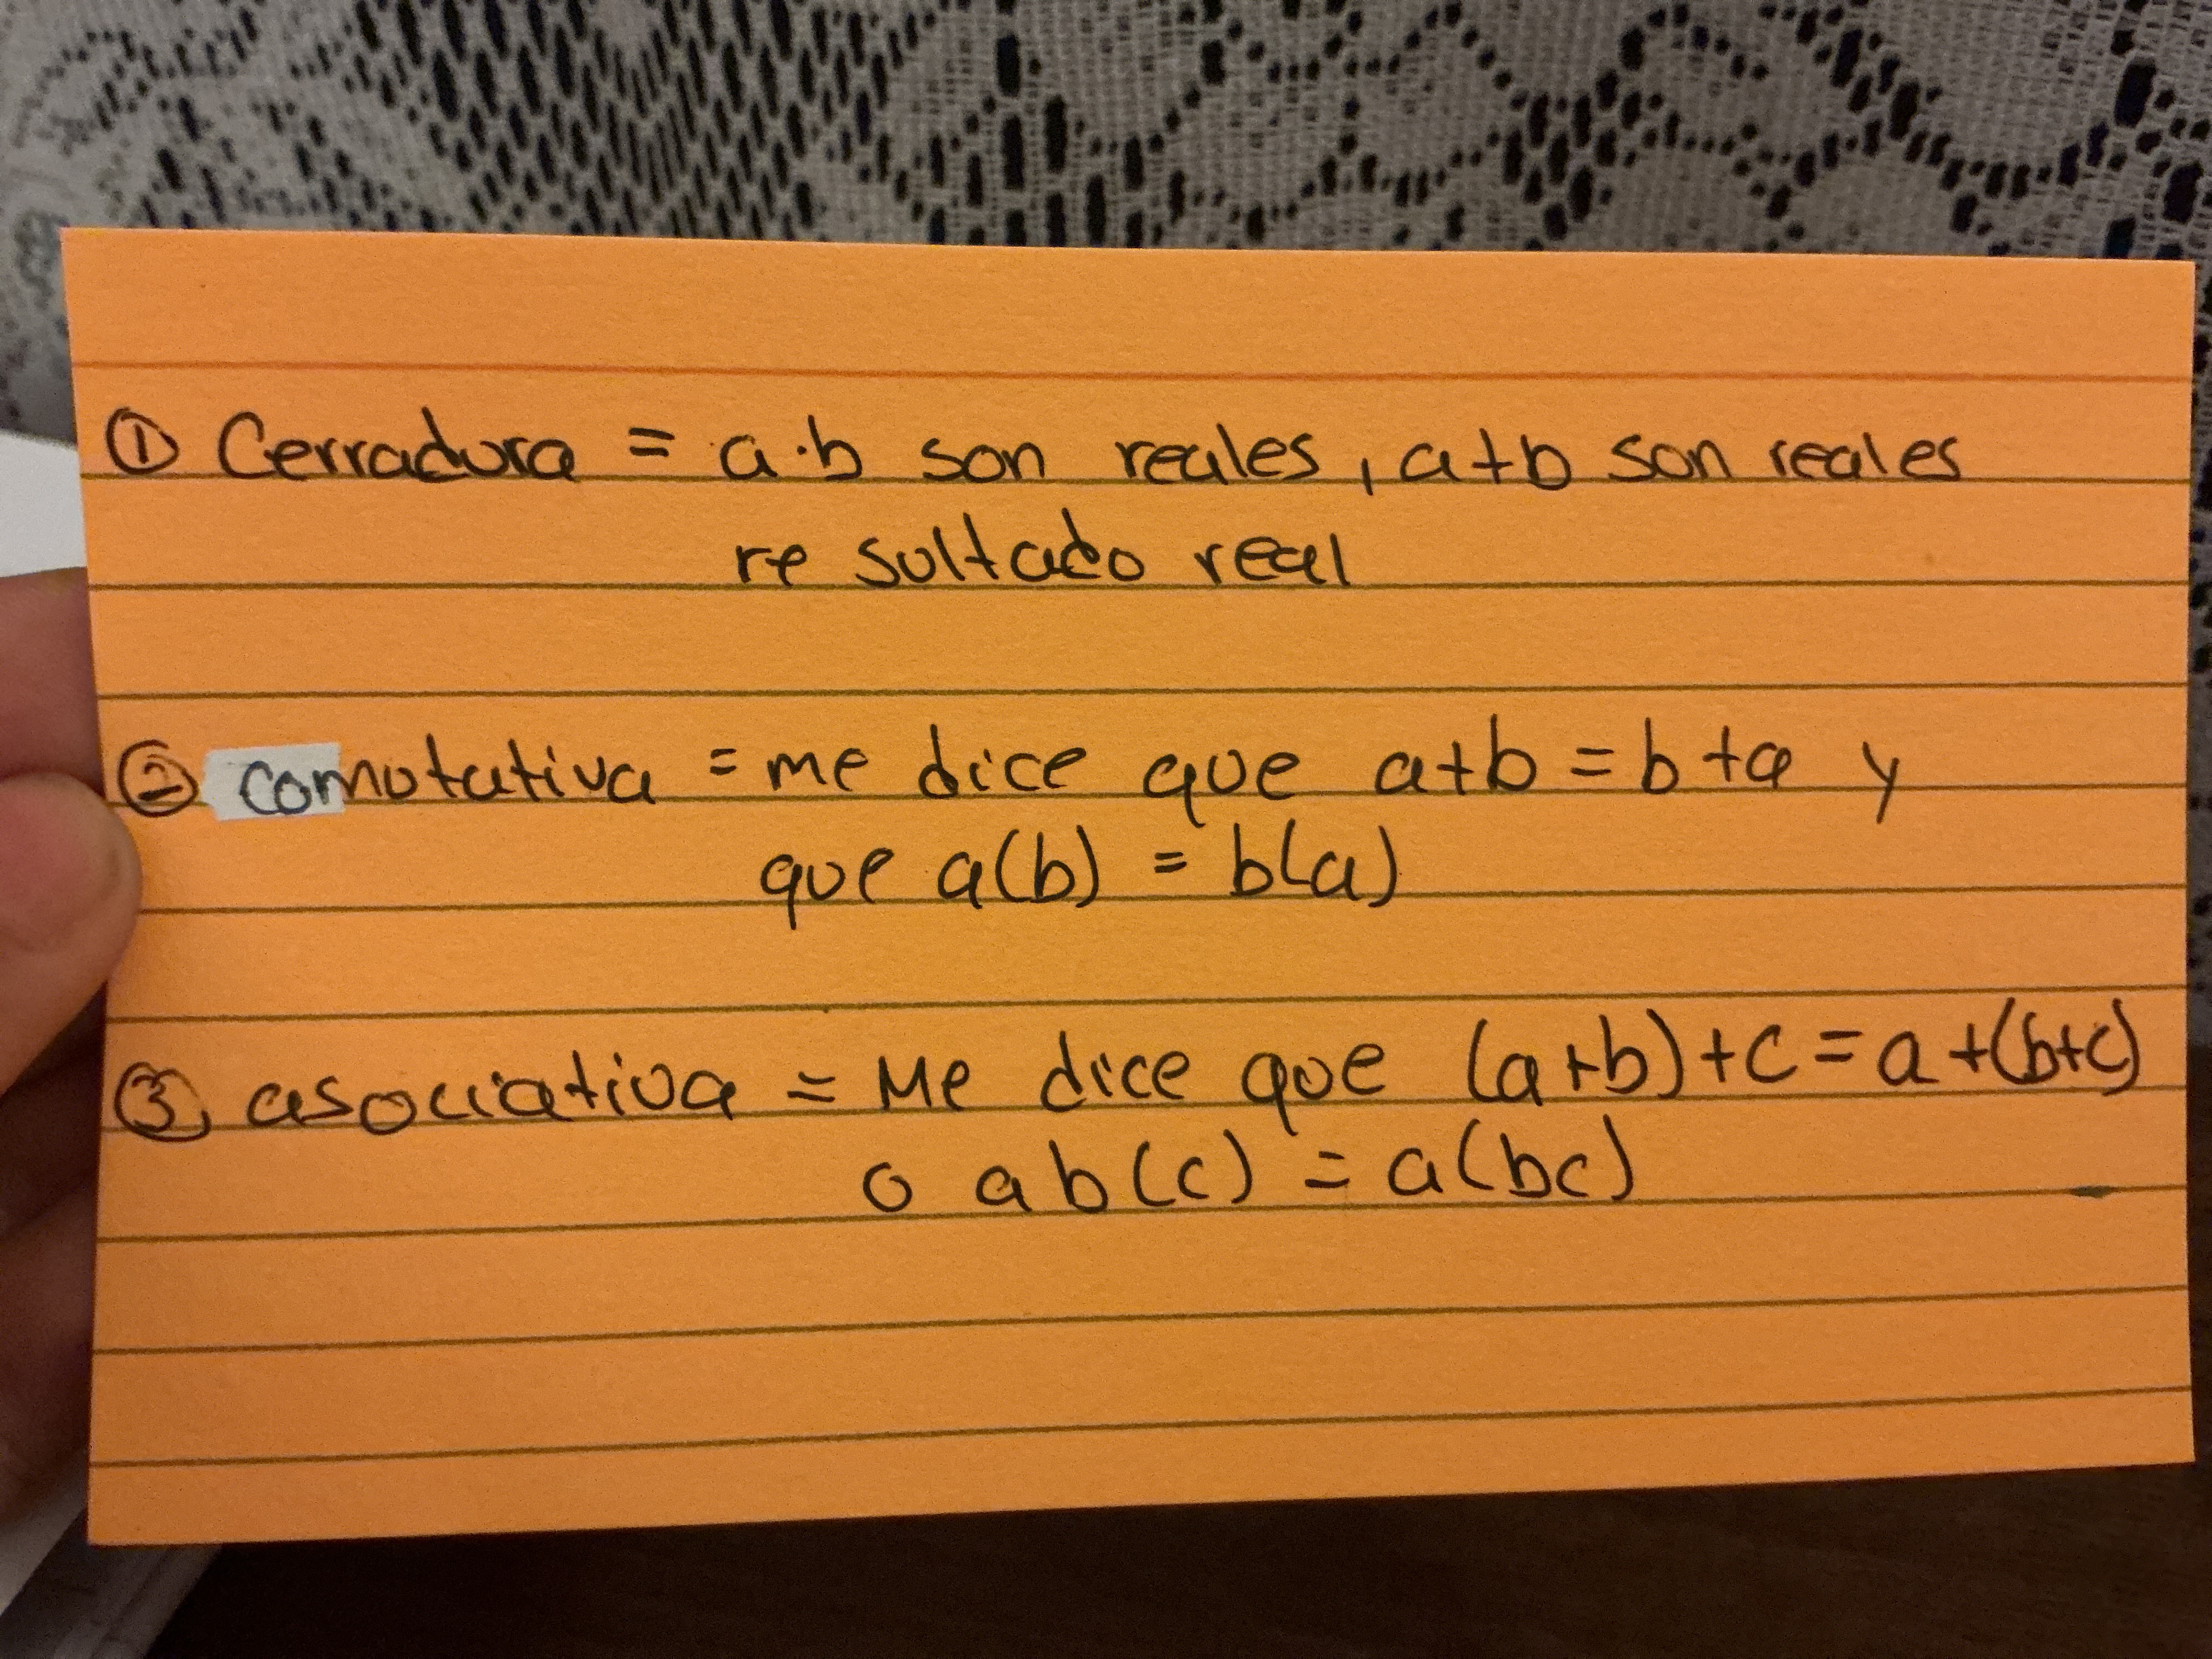 ① Cerradura = a·b son reales, a+b son reales
re sultado real
② conmutativa = me dice que a+b = b+a y
que a(b) = b(a)
③ asociativa = Me dice que (a+b)+c = a+(b+c)
o ab(c) = a(bc)